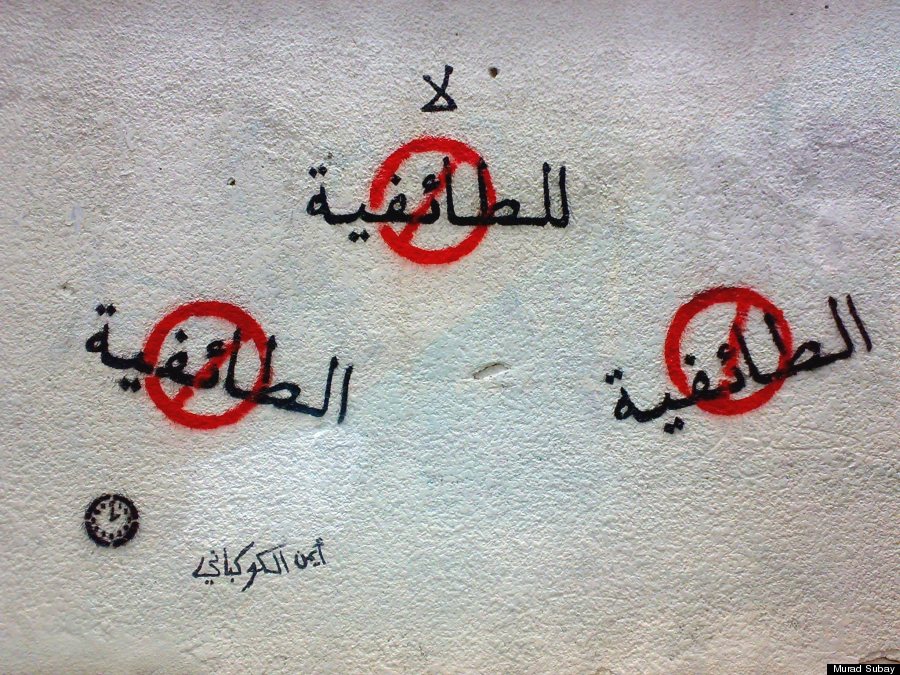 لا
للطائفية
الطائفية
الطائفية
أيمن الكوكباني
Murad Subay